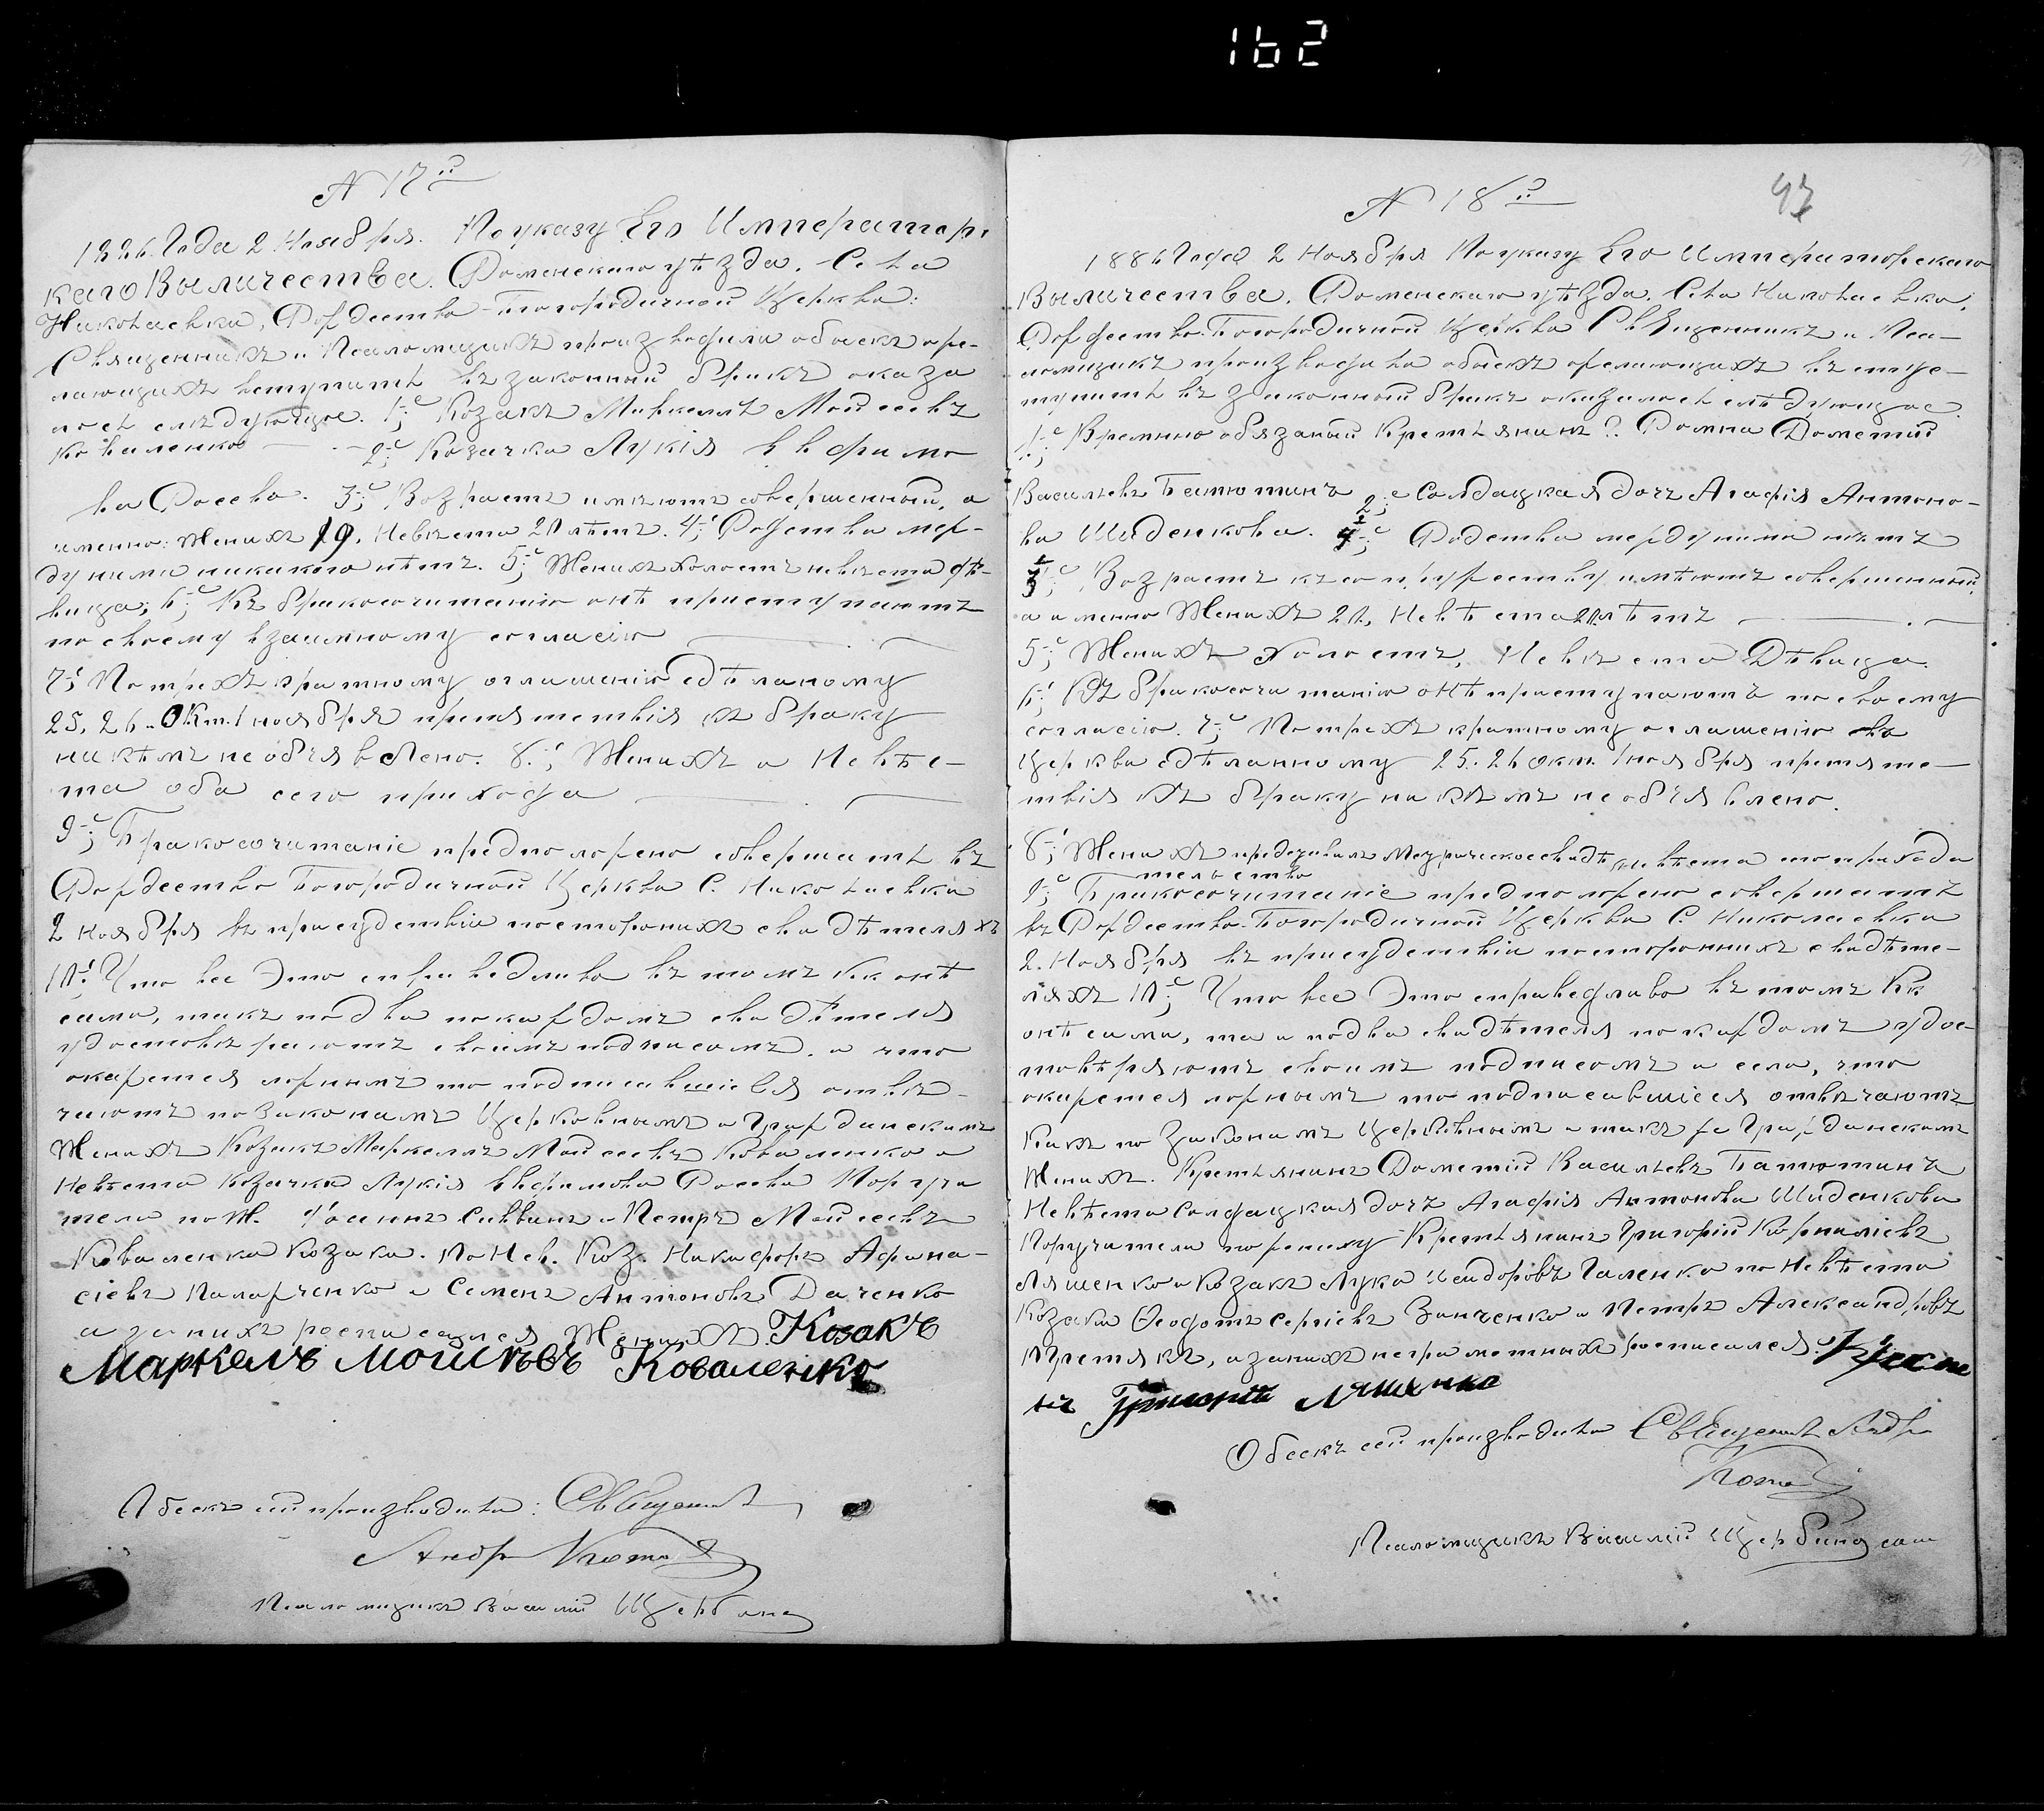 162
N 17й
1886 Года 2 Ноября. По указу Его Император
каго Выличества. Роменскаго уѣзда. Села
Николаевки, Рождество-Богородичной Церкви:
Священникъ и Псаломщикъ производили обыскъ же-
лающихъ вступить въ законный бракъ оказа
лось слѣдующое. 1е; Козакъ Маркеллъ Мойсеевъ
Коваленко 2е; Козачка Лукія Ефимо
ва Росева. 3е; Возрастъ имѣютъ совершенный, а
именно: Женихъ 19, Невѣста 20 лѣтъ. 4е; Родства меж-
ду ними никакого нѣтъ. 5е; Женихъ холостъ невѣста дѣ-
вица; 6е; Къ бракосочитанію онѣ приступаютъ
по своему взаимному согласію
7е; По трехъ кратному оглашенію сдѣланому
25, 26 Окт. 1 ноября препятствія къ браку
никѣмъ не объявлено. 8е; Женихъ и Невѣс-
та оба сего прихода
9е; Бракосочитаніе предположено совершить въ
Рождество Богородичной Церкви С. Николаевки
2 Ноября въ присудствіи постороннихъ свидѣтеляхъ
10е; Что все Это справедливо въ томъ Кк онѣ
сами, такъ по два по каждомъ свидѣтеля
удостовѣряютъ своимъ подписомъ. а что
окажется ложнымъ то подписавшіеся отвѣ-
чаютъ по законамъ Церковнымъ и Гражданскимъ
Женихъ Козакъ Маркеллъ Мойсеевъ Коваленко и
Невѣста козачка Лукія Ефимова Росева Поручи
тели по Ж. Іоаннъ Савинъ и Петръ Мойсеевъ
Коваленки Козаки. По Нев. Коз. Никифоръ Афана-
сіевъ Паларченко и Семенъ Антоновъ Даченко
а за нихъ росписался Женихъ. Козакъ
Маркелъ Мойсѣевъ Коваленко
Обыскъ сей производили: Священникъ
Андр
Псаломщикъ Василій Щербина
N 18й
47
1886 Года 2 Ноября По указу Его Императорскаго
Выличества. Роменскаго уѣзда. Села Николаевки,
Рождество-Богородичной Церкви Священникъ и Пса-
ломщикъ производили обыскъ желающихъ всту-
пить въ законный бракъ оказалось слѣдующое.
1е; Времянно обязаный Крестьянинъ Г. Ромна Дометій
Васильевъ Батютинъ 2е; Солдацкая дочь Агафія Антоно-
ва Шиденкова. Родства между ними нѣтъ
Возрастъ къ супружеству имѣютъ совершенный,
а именно Женихъ 20, Невѣста 20 лѣтъ
5е; Женихъ Холостъ, Невѣста Дѣвица.
6е; Къ бракосочитанію онѣ приступаютъ по своему
согласію. 7е; По трехъ кратному оглашенію
Церкви сдѣланному 25. 26 окт. 1 ноября препят-
твія къ браку никѣмъ не объявлено.
8е; Женихъ предъявилъ Метрическое свидѣ невѣста то прихода
тельство
9е; Бракосочитаніе предположено совершить
въ Рождество-Богородичной Церкви С. Николаевки
2. Ноября въ присудствіи постороннихъ свидѣте-
ляхъ 10е; Что все Это справедливо въ томъ Кк
онѣ сами, та и по два свидѣтеля по каждомъ удос-
товѣряютъ своимъ подписомъ и если, что
окажется ложнымъ то подписавшіеся отвѣчаютъ
Какъ по Законамъ Церковнымъ и такъ же Гражданскимъ
Женихъ. Крестьянинъ Дометій Васильевъ Батютинъ
Невѣста Солдацкая дочь Агафія Антонова Шиденкова
Поручители по жениху Крестьянинъ Григорій Корниліевъ
Ляшенко и Козакъ Лука Исидоровъ Галенко по Невѣсти
Козаки Ѳеодотъ Сергіевъ Занченко и Петръ Александровъ
а за нихъ неграмотныхъ росписался:
Григорій Ляшенко
Обыскъ сей производили Священникъ Андр
Псаломщикъ Василій Щербина